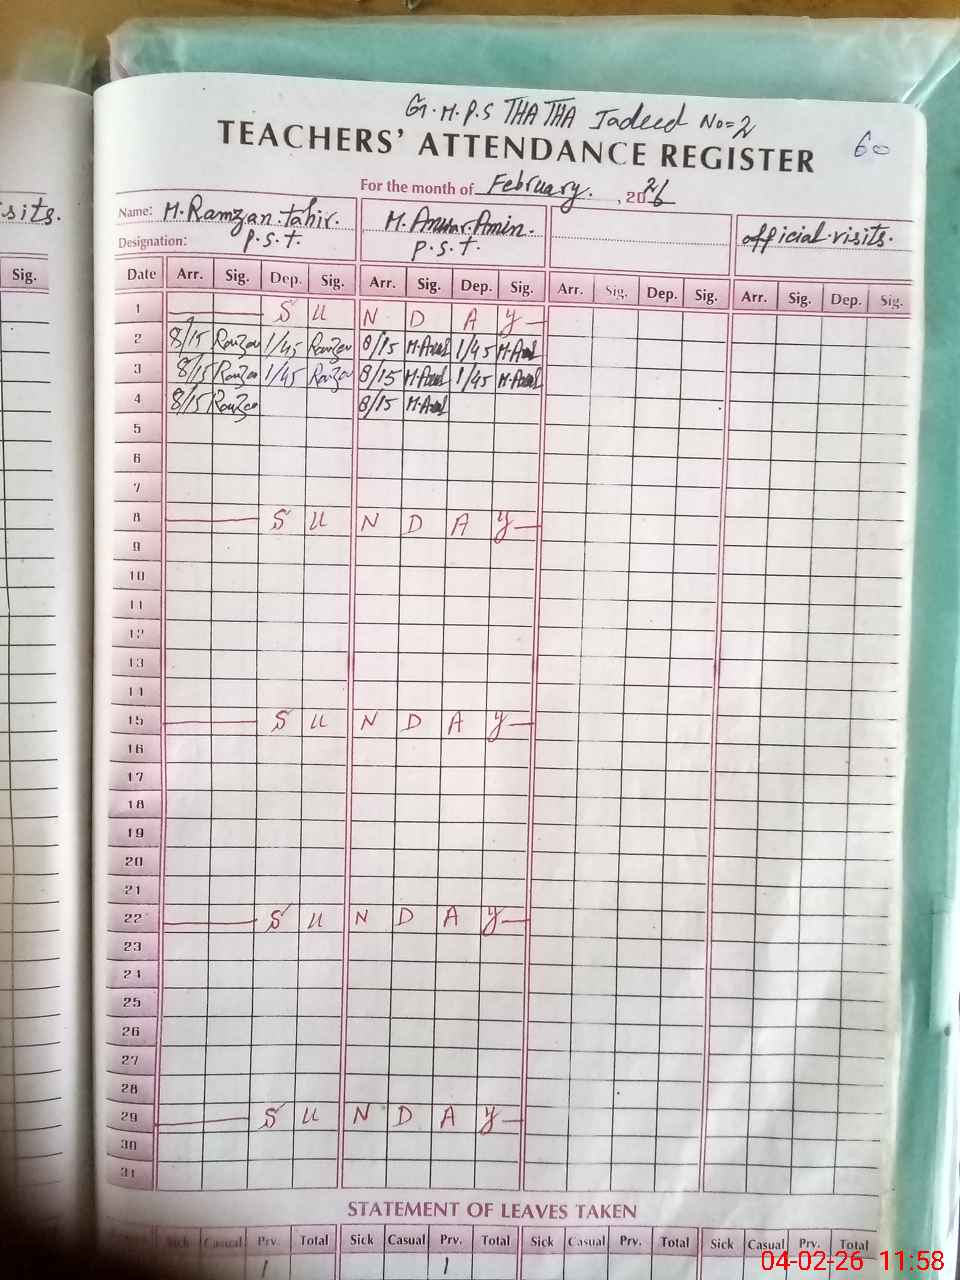 G.M.P.S THATHA Jadeed No=2
TEACHERS' ATTENDANCE REGISTER 60
For the month of February. , 2026
sits.
Name: M.Ramzan.tahir. M.Anwar.Amin.
Designation: P.S.T. P.S.T. official.visits.
Sig. Date Arr. Sig. Dep. Sig. Arr. Sig. Dep. Sig. Arr. Sig. Dep. Sig. Arr. Sig. Dep. Sig.
1 S U N D A Y
2 8/15 Ramzan 1/45 Ramzan 8/15 1/45
3 8/15 Ramzan 1/45 Ramzan 8/15 1/45
4 8/15 Ramzan 8/15
5
6
7
8 S U N D A Y
9
10
11
12
13
14
15 S U N D A Y
16
17
18
19
20
21
22 S U N D A Y
23
24
25
26
27
28
29 S U N D A Y
30
31
STATEMENT OF LEAVES TAKEN
Sick Casual Prv. Total Sick Casual Prv. Total Sick Casual Prv. Total Sick Casual Prv. Total
1 1
04-02-26 11:58